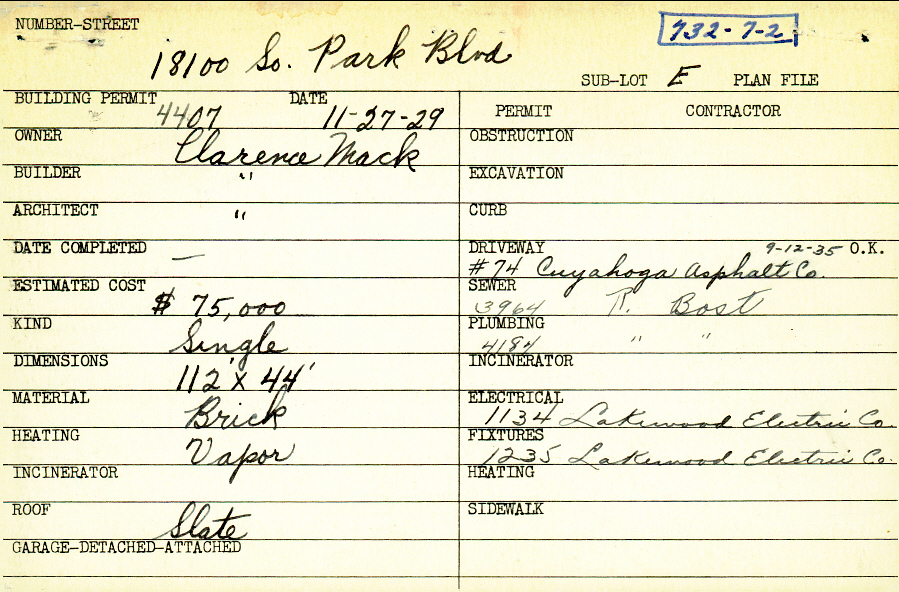 NUMBER-STREET
732-7-2
18100 So. Park Blvd
SUB-LOT E PLAN FILE
BUILDING PERMIT 4407 DATE 11-27-29
OWNER Clarence Mack
BUILDER "
ARCHITECT "
DATE COMPLETED —
ESTIMATED COST $ 75,000
KIND Single
DIMENSIONS 112' x 44'
MATERIAL Brick
HEATING Vapor
INCINERATOR
ROOF Slate
GARAGE-DETACHED-ATTACHED
PERMIT CONTRACTOR
OBSTRUCTION
EXCAVATION
CURB
DRIVEWAY 9-12-35 O.K.
#74 Cuyahoga Asphalt Co.
SEWER
3964 R. Bost
PLUMBING
4184 " "
INCINERATOR
ELECTRICAL
1134 Lakewood Electric Co.
FIXTURES
1235 Lakewood Electric Co.
HEATING
SIDEWALK